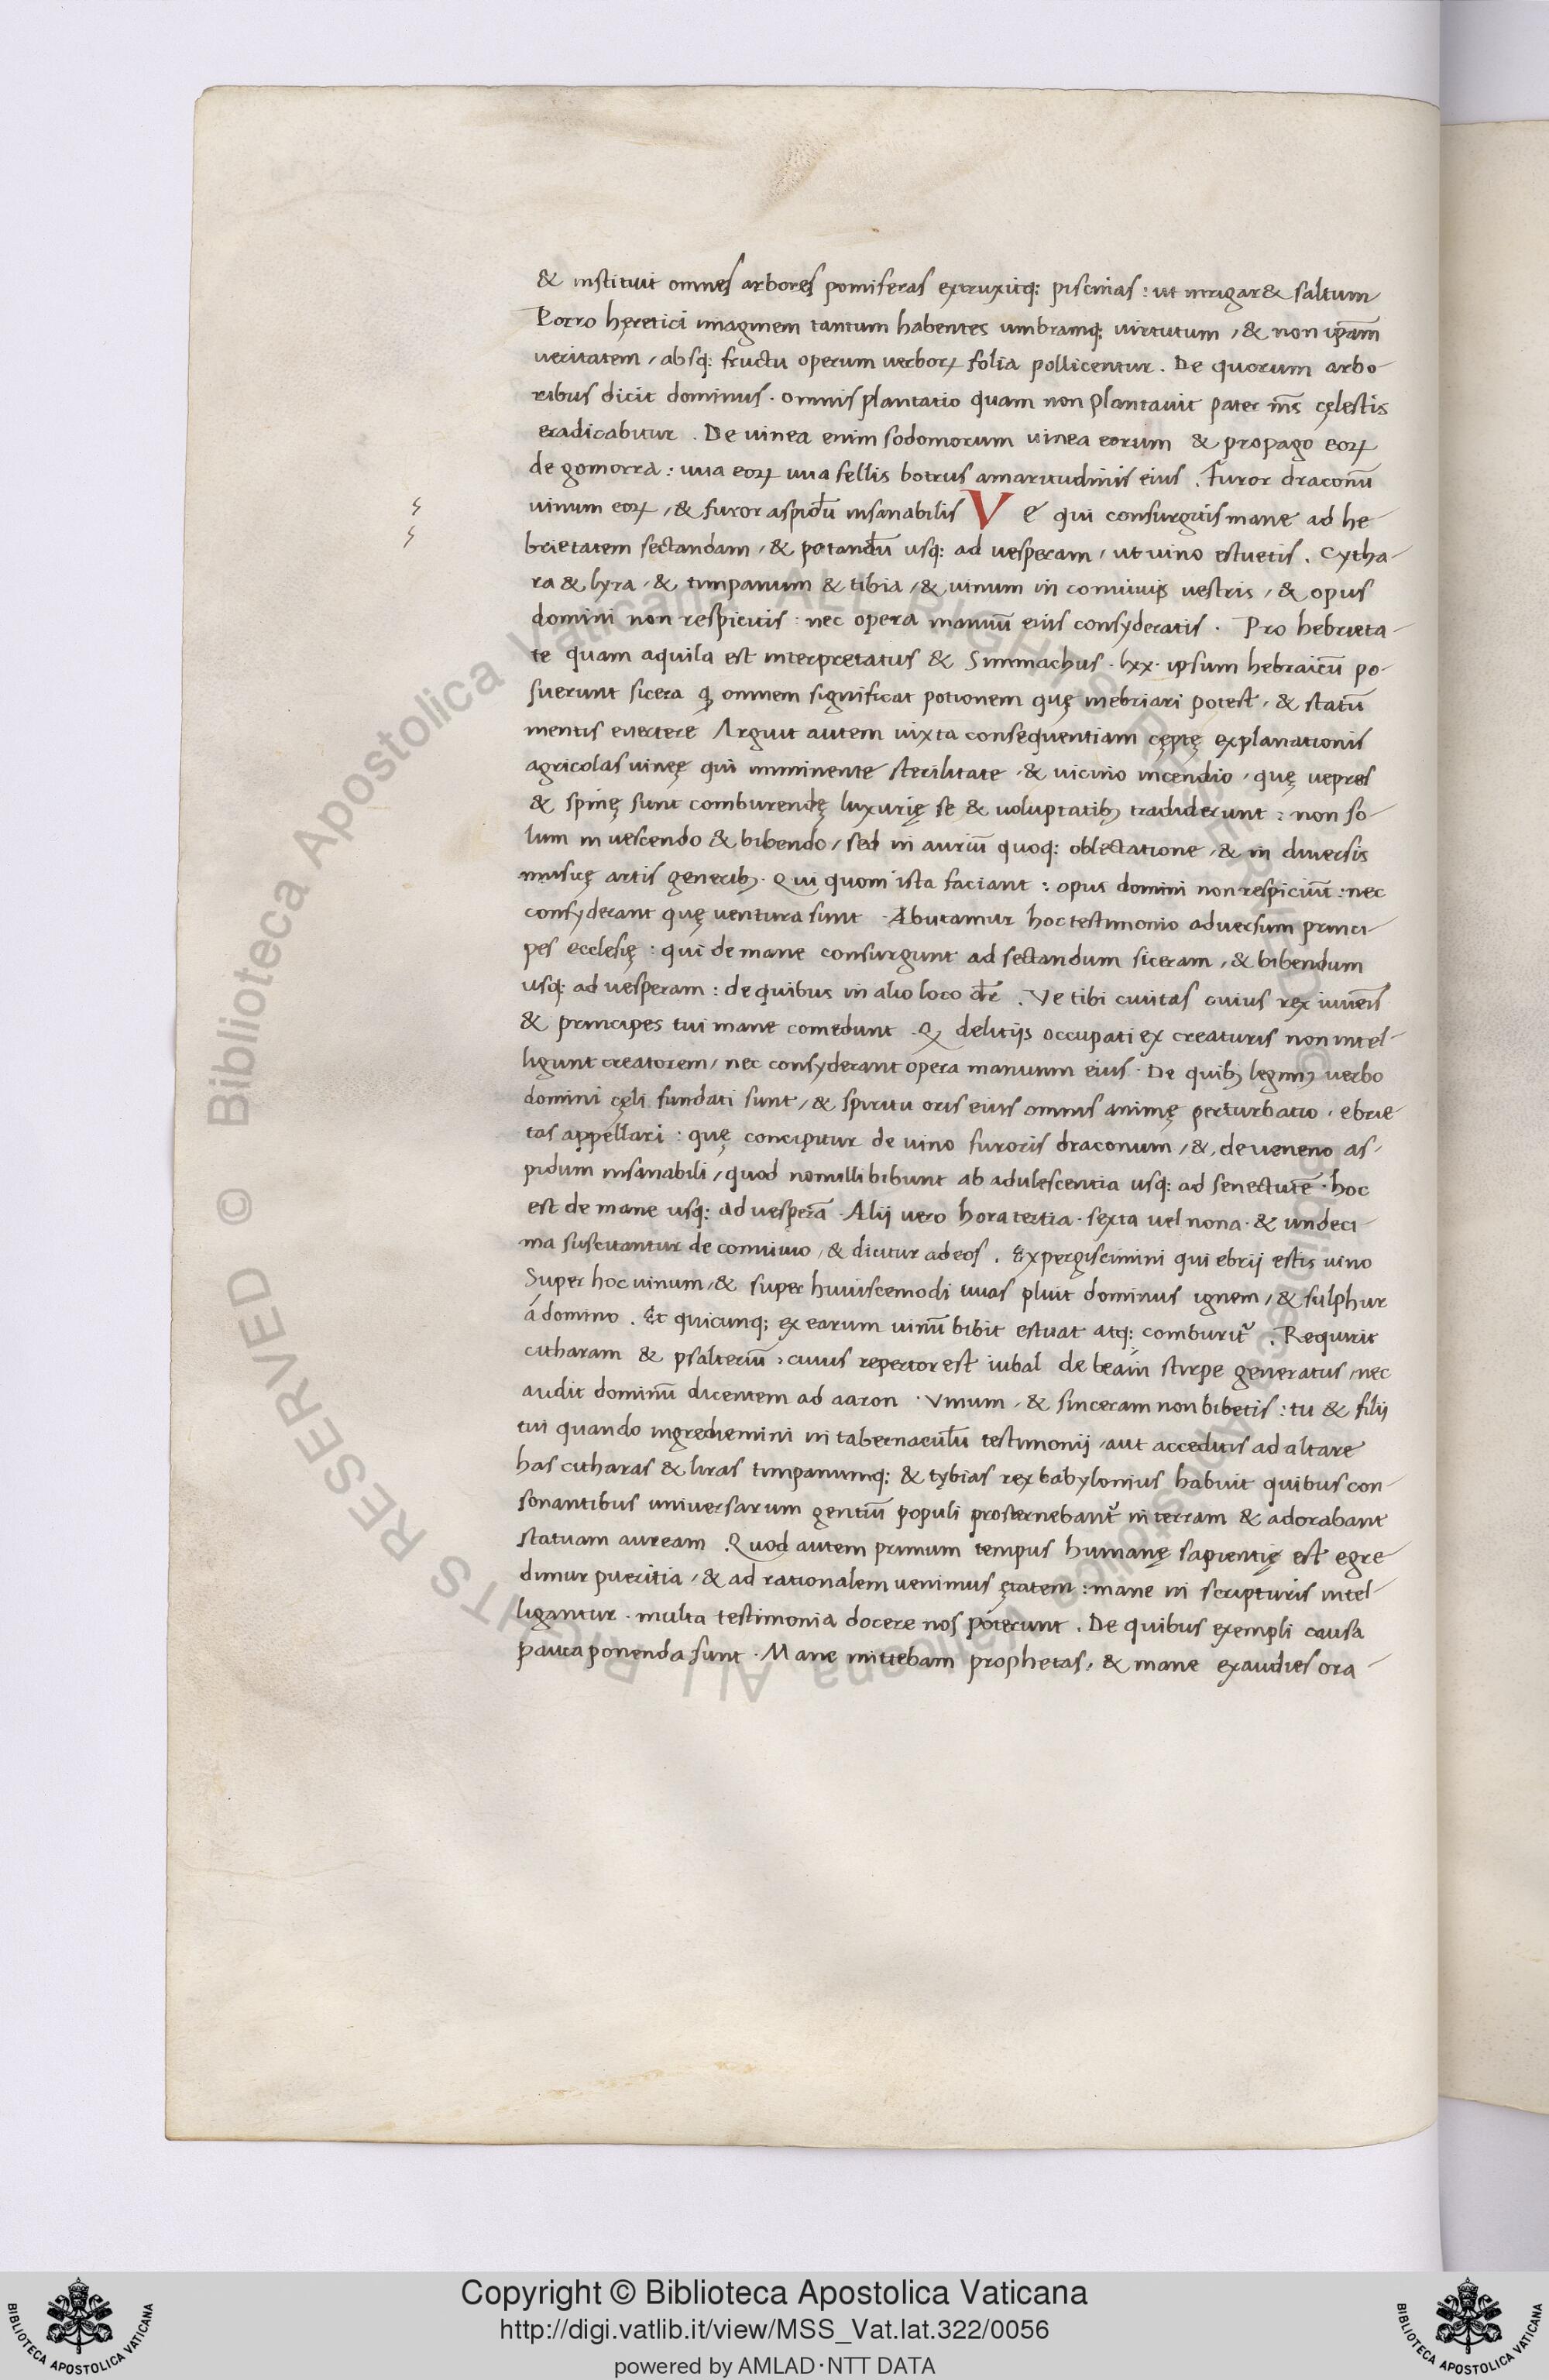 & instituit omnes arbores pomiferas extruxitq: piscinas : ut irrigar& saltum
Porro hęretici imaginem tantum habentes umbramq; uirtutum , & non ip̄am
ueritatem , absq: fructu operum uerboꝝ folia pollicentur . De quorum arbo-
ribus dicit dominus . omnis plantatio quam non plantauit pater m̄s cęlestis
eradicabitur . De uinea enim sodomorum uinea eorum & propago eoꝝ
de gomorra : uua eoꝝ uua fellis botrus amaritudinis eius . Furor draconū
uinum eoꝝ , & furor aspidū insanabilis Ve qui consurgitis mane ad he-
brietatem sectandam , & potandū usq: ad uesperam , ut uino estuetis . Cytha-
ra & lyra , & timpanum & tibia , & uinum in conuiuijs uestris , & opus
domini non respicitis : nec opera manuū eius consyderatis . Pro hebrieta-
te quam aquila est interpretatus & Simmachus . lxx . ipsum hebraicū po-
suerunt sicera ꝙ omnem significat potionem quę inebriari potest , & statū
mentis euertere Arguit autem iuxta consequentiam cęptę explanationis
agricolas uineę qui imminente sterilitate , & uicino incendio , quę uepres
& spinę sunt comburendę luxurię se & uoluptatibꝫ tradiderunt : non so-
lum in uescendo & bibendo , sed in auriū quoq: oblectatione , & in diuersis
musicę artis generibꝫ . Qui quom ista faciant : opus domini non respiciūt : nec
consyderant quę uentura sunt . Abutamur hoc testimonio aduersum princi-
pes ecclesię : qui de mane consurgunt ad sectandum siceram , & bibendum
usq: ad uesperam : de quibus in alio loco dr̄ . Ve tibi ciuitas cuius rex iuuēis
& principes tui mane comedunt . Qꝫ delitijs occupati ex creaturis non intel-
ligunt creatorem , nec consyderant opera manuum eius . De quibꝫ legimꝫ uerbo
domini cęli fundati sunt , & spiritu oris eius omnis animę perturbatio , ebrie-
tas appellari : quę concipitur de uino furoris draconum , & , de ueneno as-
pidum insanabili , quod nonulli bibunt ab adulescentia usq: ad senectutē . hoc
est de mane usq: ad uesperā . Alij uero hora tertia . sexta uel nona . & undeci-
ma suscitantur de conuiuio , & dicitur ad eos . Expergiscimini qui ebrij estis uino
Super hoc uinum , & super huiuscemodi uuas pluit dominus ignem , & sulphur
á domino . Et quicunq; ex earum uinū bibit estuat atq: comburit᷑ . Requirit
citharam & psalteriū , cuius repertor est iubal de beain stirpe generatus , nec
audit dominū dicentem ad aaron . Vinum , & sinceram non bibetis : tu & filij
tui quando ingrediemini in tabernaculū testimonij , aut acceditis ad altare
has citharas & liras timpanumq: & tybias rex babylonius habuit quibus con-
sonantibus uniuersarum gentiū populi prosternebant᷑ in terram & adorabant
statuam auream . Quod autem primum tempus humanę sapientię est egre-
dimur pueritia , & ad rationalem uenimus ętatem : mane in scripturis intel-
ligantur . multa testimonia docere nos póterunt . De quibus exempli causa
pauca ponenda sunt . Mane mittebam prophetas , & mane exaudies ora-
© Biblioteca Apostolica Vaticana ALL RIGHTS RESERVED
© Biblioteca Apostolica Vaticana ALL RIGHTS RESERVED
Copyright © Biblioteca Apostolica Vaticana
http://digi.vatlib.it/view/MSS_Vat.lat.322/0056
powered by AMLAD·NTT DATA
BIBLIOTECA APOSTOLICA VATICANA
BIBLIOTECA APOSTOLICA VATICANA